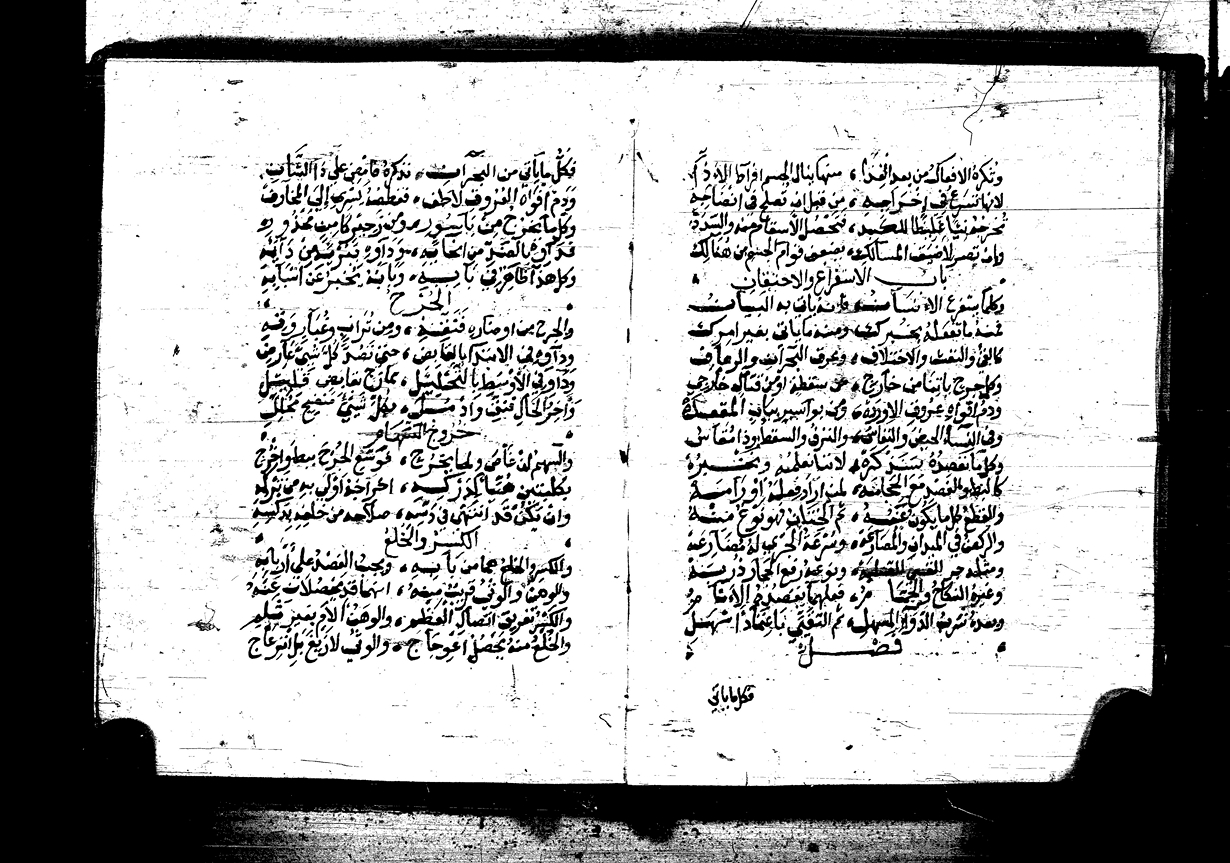 ١٤
وتكره الافعال من بعد الغذا، منها ينال الجسم افراط الاذى
لانها تسرع في اخراجه، من قبل ان تعلم في انضاجه
تخرجه نيا غليظا للكبد، فتحصل الأسقام منه والسدد
وان يصير لاضيق المسالك، يضعف قوام الجسم من هنالك
باب الاستفراغ والاحتقان
وكلما يستفرغ الانسان، وانه يات به البيان
فمنه ما تفعله بخبرك، ومنه ما ياتي بغير امرك
كالقي والنفث والاختلاف، وبحرف البحران والرعاف
وكل جرح ياتنا من خارج، من سقطة او من قتال خارجي
ودم افواه عروف الاورده، وكل بواسير بباب المقعدة
وفي النساء الحيض والنفاس، والنزف والسقط وذا مقاسى
وكل ما نقصده سنذكره، لاننا نعلمه ونخبره
كالبط والفصد مع الحجامه، لمن اراد فعله او رامه
والقطع كل ما يكون عفنه، ثم الختان فهو نوع منه
والركض في الميدان والمصارعه، وسرعة الجري له مضارعه
ومثله جر ونوعه رفع الحجار
وعنده النكاح والحمام، فعلهما بقصد
وبعده شرب الدواء المسهل، ثم التقيي باعتماد اسهل
فصل
فكل ما ياتي
فكل ما ياتي من البحران، نذكره فامض على ذا الشان
ودم افواه العروق لاطف، فقطعه يسري إلى المخاوف
وكل ما يخرج من باسور، ومن زحير كامن محذوره
قد اوه بالضد من اسبابه، وداوه بنزيه من دابه
وكل هذا ظاهر في بابه، وبابه يخبر عن اسبابه
الجرح
والجرح من اوضاره فنقه، ومن تراب وغبار وقه
وداوه في الابتدا بالقابض، حتى تصد كل شيء عارض
وداو في الأوسط بالتحليل، يمازج بقابض قليل
واخر الحال فنق وادمل، بكل شيء منضج محلل
خروج السهام
والسهم ان غاص ولما يخرج، فوسع الجرح ببط واخرج
بكلبتين هيئا لدركه، اخراجه اولى به من تركه
وان يكن قد انتهى في دسه، صلاحه من خلفه بدكه
الكسر والخلع
والكسر والخلع هما من بابه، ويجب الفصد على أربابه
والوهن والوثي قريب منه، انهما قد يحصلان عنه
والكسر تفريق اتصال العظم، والوهن الام بغير ثلم
والخلع منه يحصل اعوجاج، والوثي لا زيغ بل انزعاج